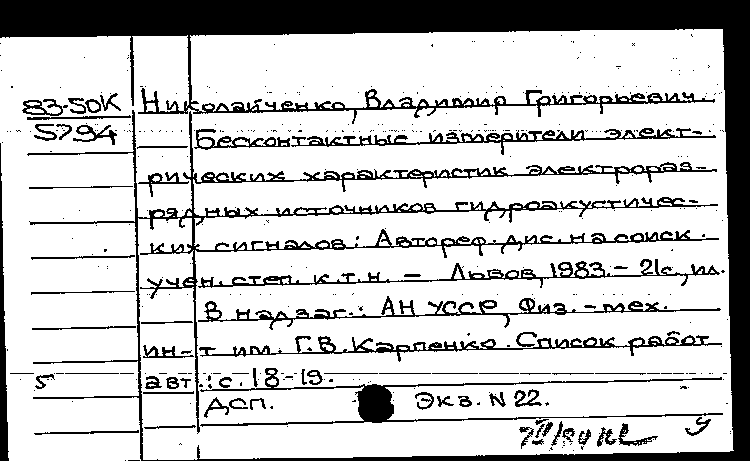 83-50К Николайченко, Владимир Григорьевич.
5794 Бесконтактные измерители элект-
рических характеристик электрораз-
рядных источников гидроакустичес-
ких сигналов: Автореф. дис. на соиск.
учен. степ. к.т.н. – Львов, 1983. – 21с., ил.
В надзаг.: АН УССР, Физ.-мех.
ин-т им. Г.В. Карпенко. Список работ
5 авт.: с. 18-19.
ДСП. Экз. N 22.
У